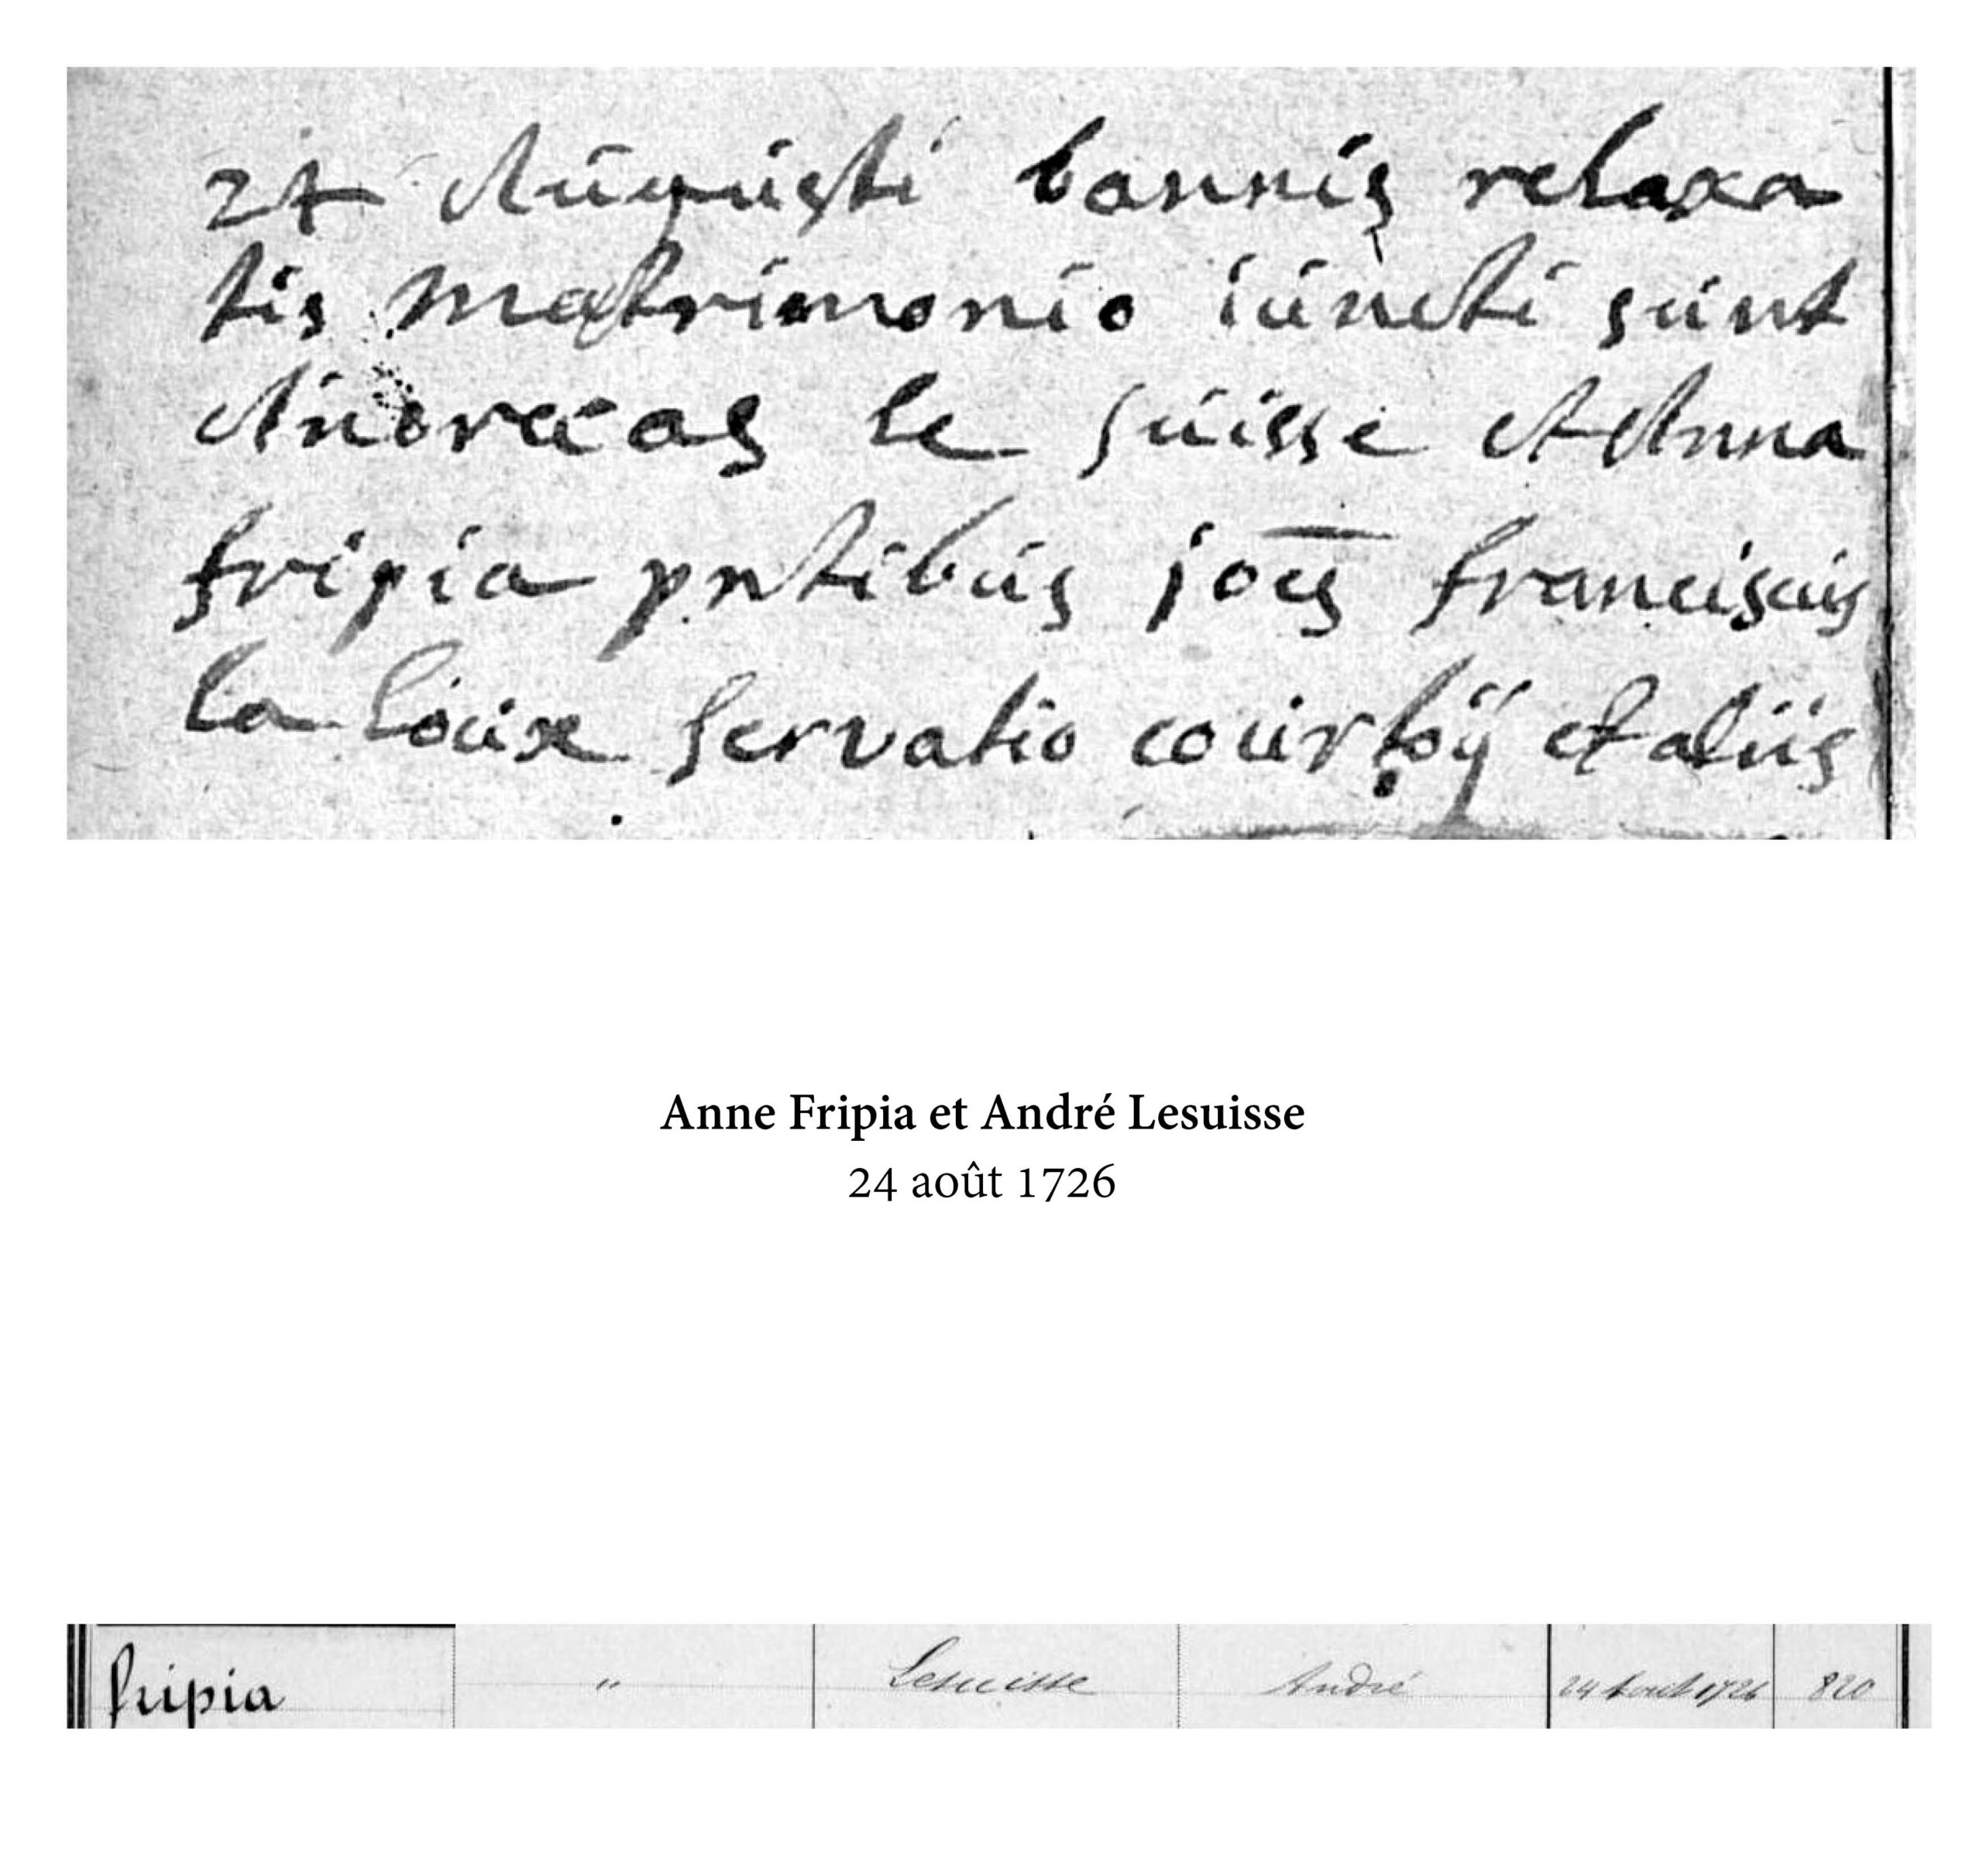 24 Augusti bannis relaxa
tis matrimonio iuncti sunt
Andreas le suisse et Anna
fripia pntibus joes
la loux servatio courtoÿ et aliis
Anne Fripia et André Lesuisse
24 août 1726
fripia " Lesuisse André 24 Aout 1726 820